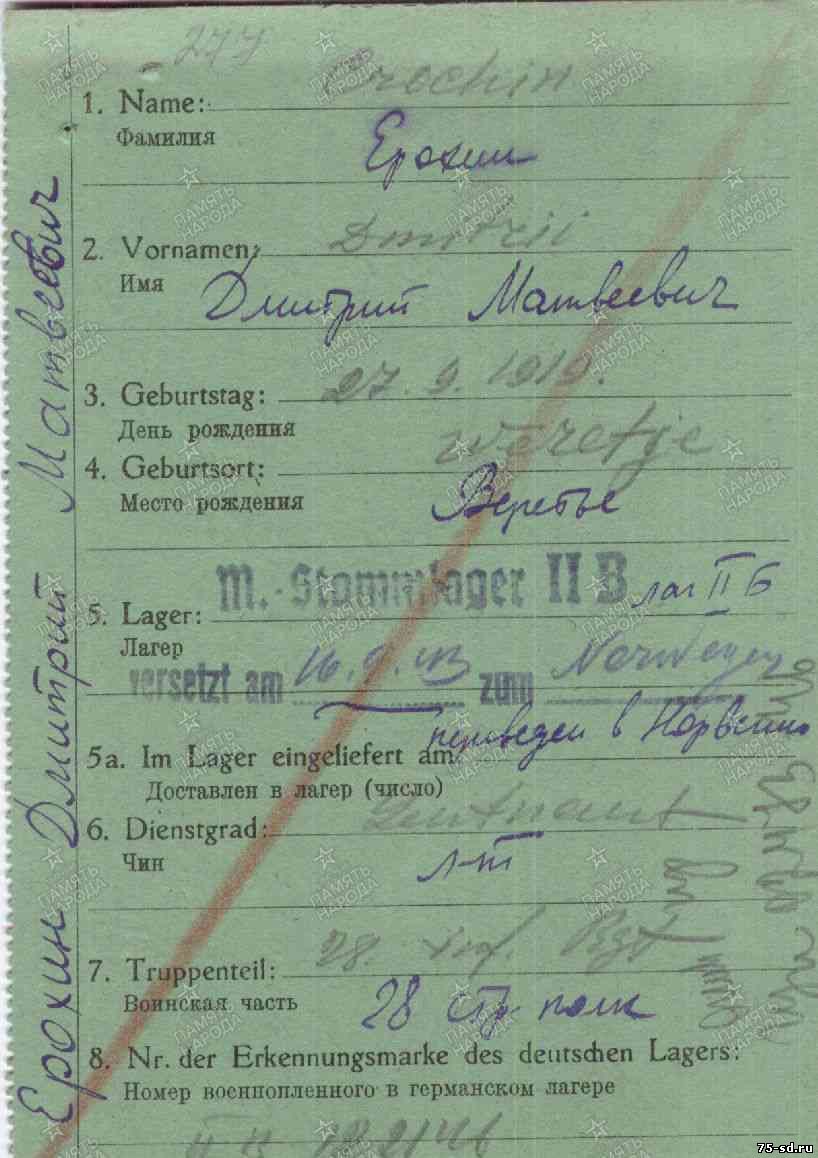 277
Erochin
1. Name:
Фамилия
Ерохин
Dmitrii
2. Vornamen:
Имя
Дмитрий Матвеевич
27.9.1919.
3. Geburtstag:
День рождения
Weretje
4. Geburtsort:
Место рождения
Веретье
M.-Stammlager II B
лаг II Б
5. Lager:
Лагер
versetzt am 16.9.43 zum Norwegen
переведен в Норвегию
5a. Im Lager eingeliefert am:
Доставлен в лагер (число)
Leutnant
6. Dienstgrad:
Чин
л-т
28. Inf. Rgt
7. Truppenteil:
Воинская часть
28 стр полк
8. Nr. der Erkennungsmarke des deutschen Lagers:
Номер военнопленного в германском лагере
II B
Ерохин Дмитрий Матвеевич
ПАМЯТЬ НАРОДА
75-sd.ru